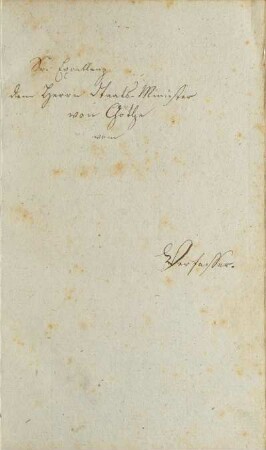 Sr. Excellenz
dem Herrn Staats-Minister
von Göthe
vom
Verfasser.